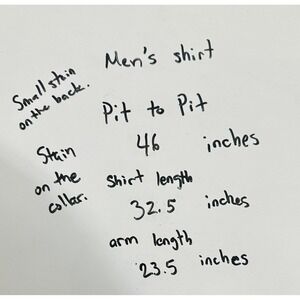 Men's shirt
Small stain
on the back.
Pit to Pit
46 inches
Stain
on the
collar.
Shirt length
32.5 inches
arm length
23.5 inches